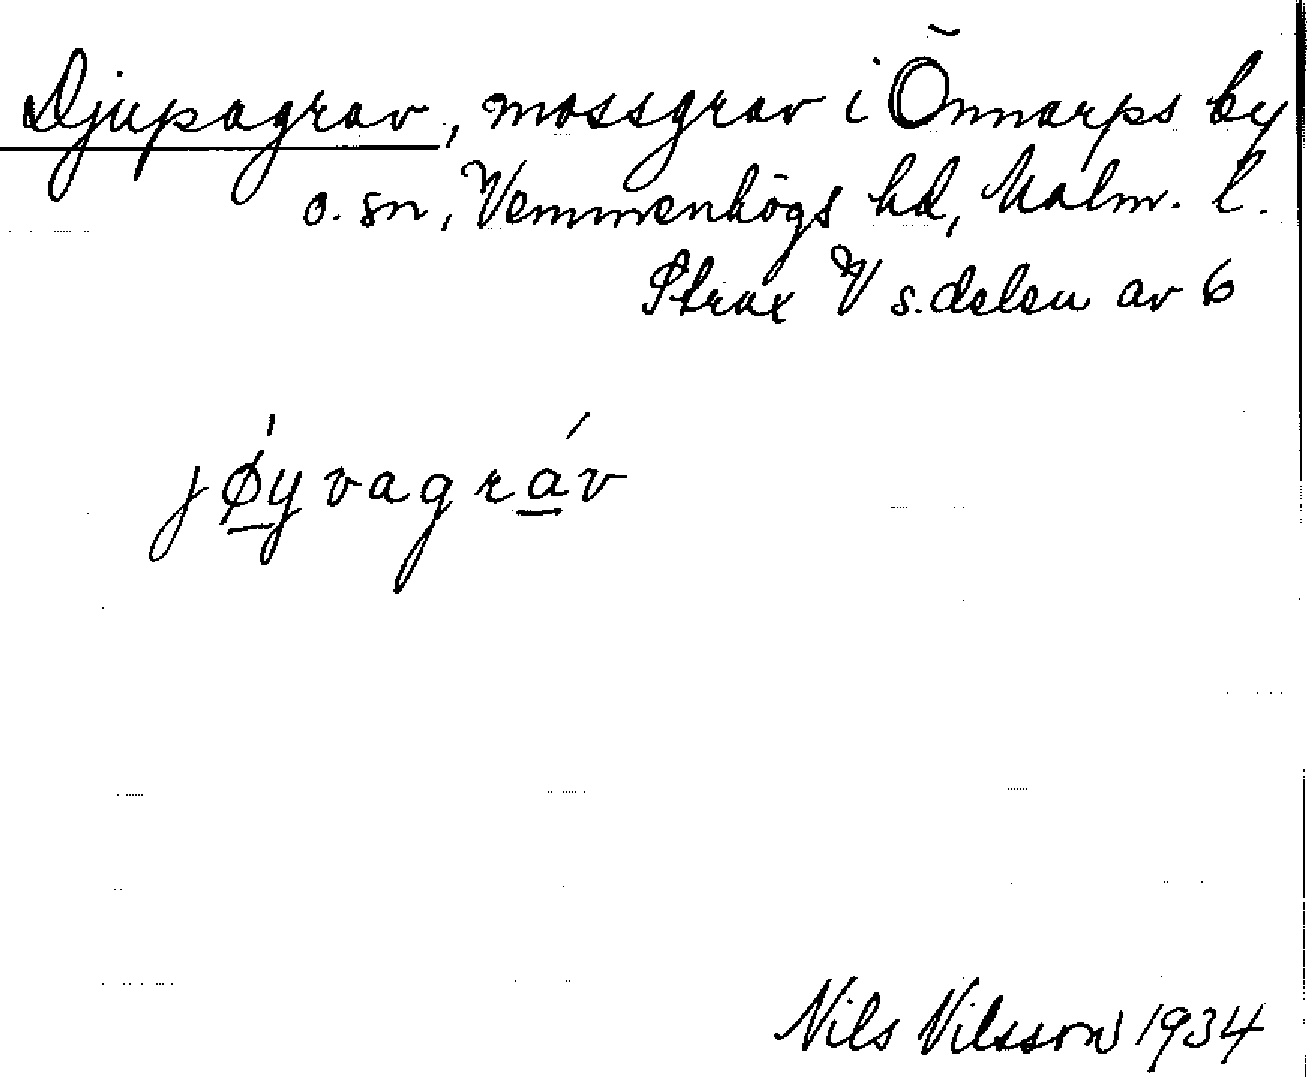 Djupagrav, mossgrav i Önnarps by
o. sn, Vemmenhögs hd, Malm. l.
Strax V s.delen av 6
jøyvagráv
Nils Nilsson 1934